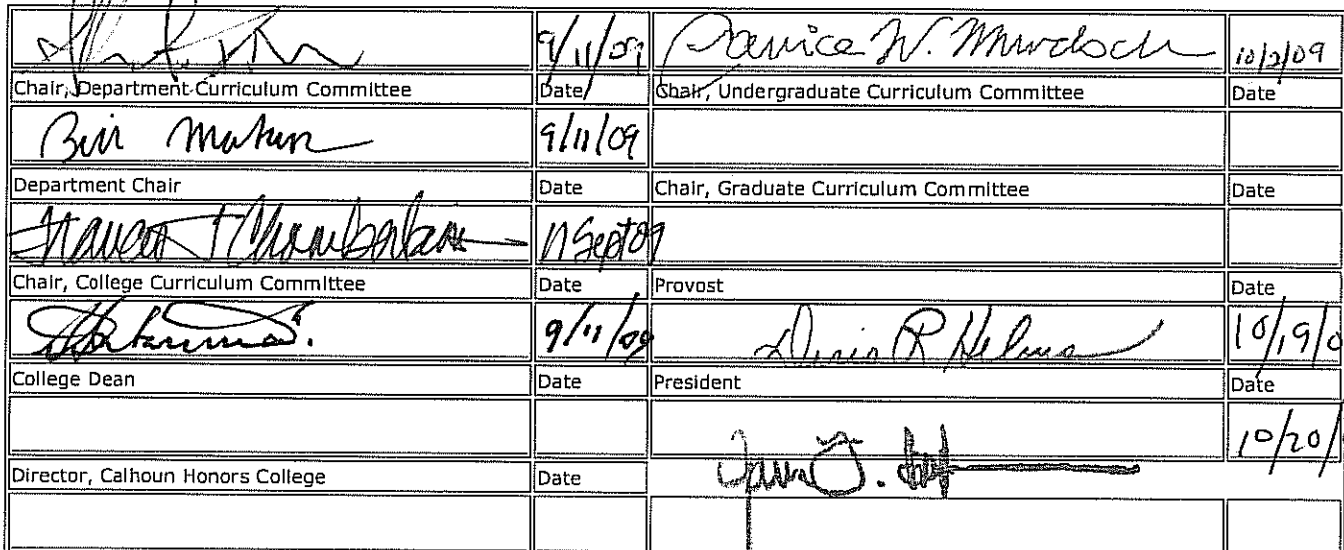 9/11/09 Janice W. Murdoch 10/2/09
Chair, Department Curriculum Committee Date Chair, Undergraduate Curriculum Committee Date
Bill 9/11/09
Department Chair Date Chair, Graduate Curriculum Committee Date
11 Sept 09
Chair, College Curriculum Committee Date Provost Date
9/11/09 Doris R. Helms 10/19/0
College Dean Date President Date
10/20/
Director, Calhoun Honors College Date